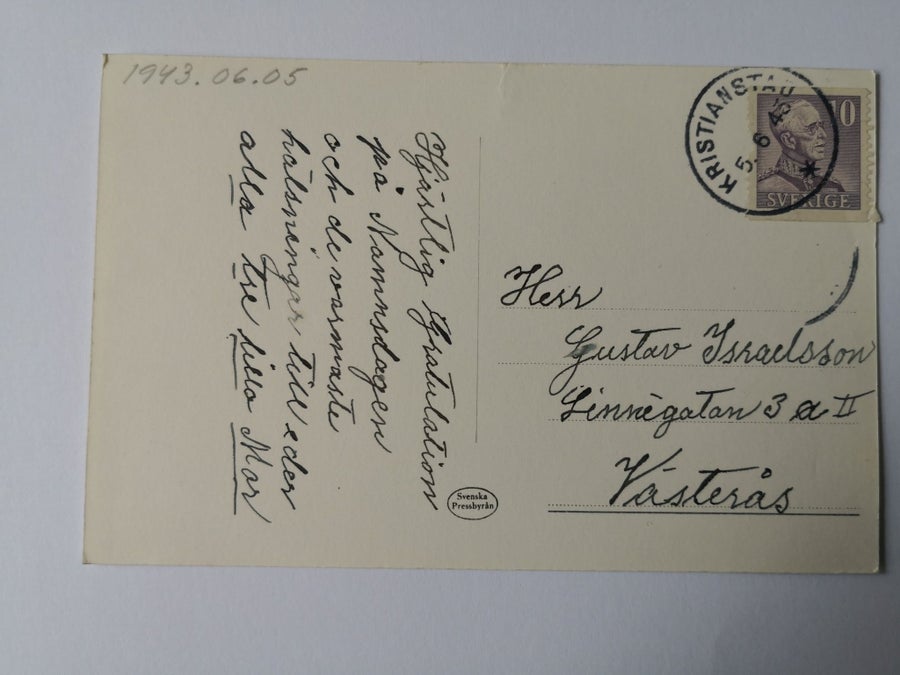 1943.06.05
Hjärtlig Gratulation
på Namnsdagen
och de varmaste
hälsningar till eder
alla tre lilla Mor
Svenska
Pressbyrån
KRISTIANSTAD
5. 6 43
10
SVERIGE
Herr
Gustav Israelsson
Linnégatan 3 a II
Västerås